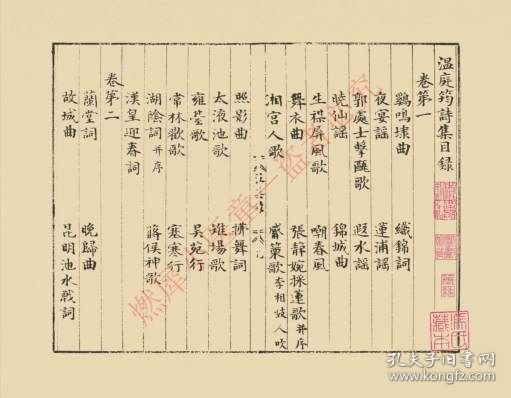 温庭筠詩集目録
卷第一
鷄鳴埭曲 織錦詞
夜宴謡 蓮浦謡
郭處士擊甌歌 遐水謡
曉仙謡 錦城曲
生禖屏風歌 嘲春風
舞衣曲 張静婉採蓮歌并序
湘宫人歌 觱篥歌李相妓人吹
照影曲 拂舞詞
太液池歌 雉場歌
雍臺歌 吴苑行
常林歡歌 塞寒行
湖陰詞并序 蔣侯神歌
漢皇迎春詞
卷第二
蘭堂詞 晚歸曲
故城曲 昆明池水戰詞
藏本
孔夫子旧书网
www.kongfz.com